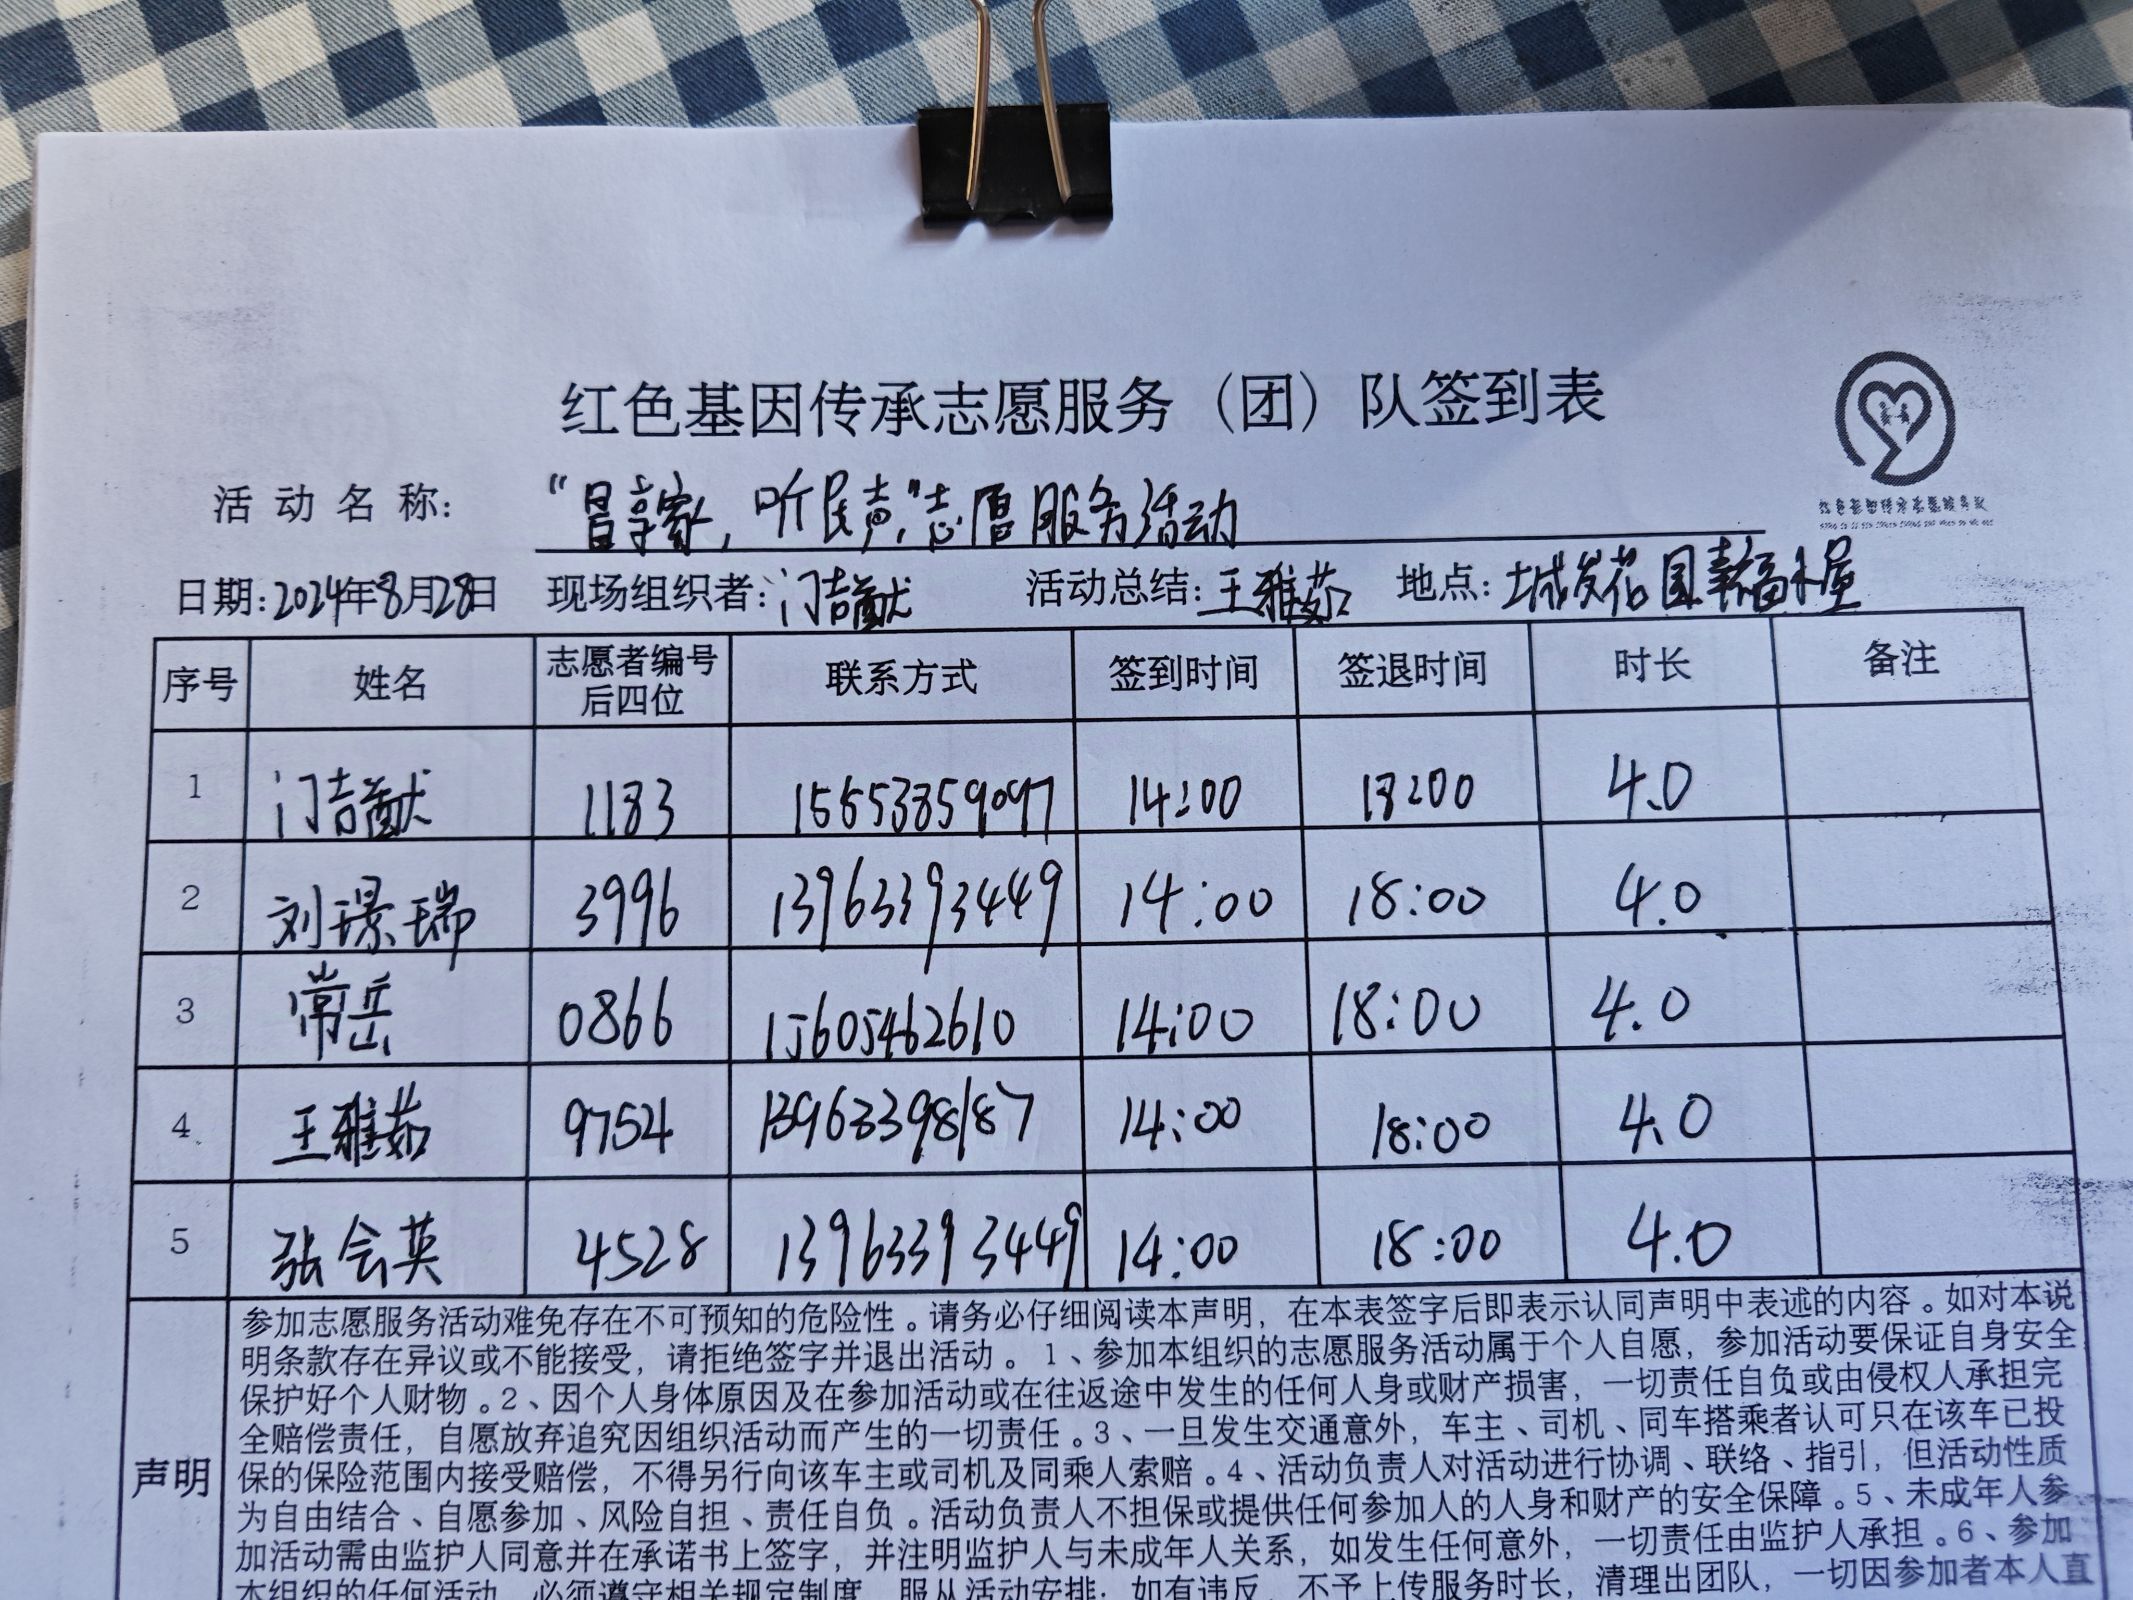 红色基因传承志愿服务（团）队签到表
活动名称: "冒享家,听民声"志愿服务活动
日期:2024年8月28日 现场组织者:门吉猷 活动总结:王雅茹 地点:城发花园幸福小屋
序号 姓名 志愿者编号后四位 联系方式 签到时间 签退时间 时长 备注
1 门吉猷 1183 15653859097 14:00 18:00 4.0
2 刘璟瑞 3996 13963393449 14:00 18:00 4.0
3 常岳 0866 15605462610 14:00 18:00 4.0
4 王雅茹 9754 13963398187 14:00 18:00 4.0
5 张会英 4528 13963393449 14:00 18:00 4.0
声明
参加志愿服务活动难免存在不可预知的危险性。请务必仔细阅读本声明，在本表签字后即表示认同声明中表述的内容。如对本说
明条款存在异议或不能接受，请拒绝签字并退出活动。1、参加本组织的志愿服务活动属于个人自愿，参加活动要保证自身安全
保护好个人财物。2、因个人身体原因及在参加活动或在往返途中发生的任何人身或财产损害，一切责任自负或由侵权人承担完
全赔偿责任，自愿放弃追究因组织活动而产生的一切责任。3、一旦发生交通意外，车主、司机、同车搭乘者认可只在该车已投
保的保险范围内接受赔偿，不得另行向该车主或司机及同乘人索赔。4、活动负责人对活动进行协调、联络、指引，但活动性质
为自由结合、自愿参加、风险自担、责任自负。活动负责人不担保或提供任何参加人的人身和财产的安全保障。5、未成年人参
加活动需由监护人同意并在承诺书上签字，并注明监护人与未成年人关系，如发生任何意外，一切责任由监护人承担。6、参加
本组织的任何活动，必须遵守相关规定制度，服从活动安排；如有违反，不予上传服务时长，清理出团队，一切因参加者本人直